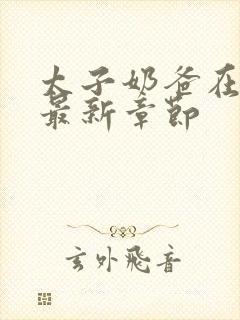 太子奶爸在
最新章节
玄外飛音